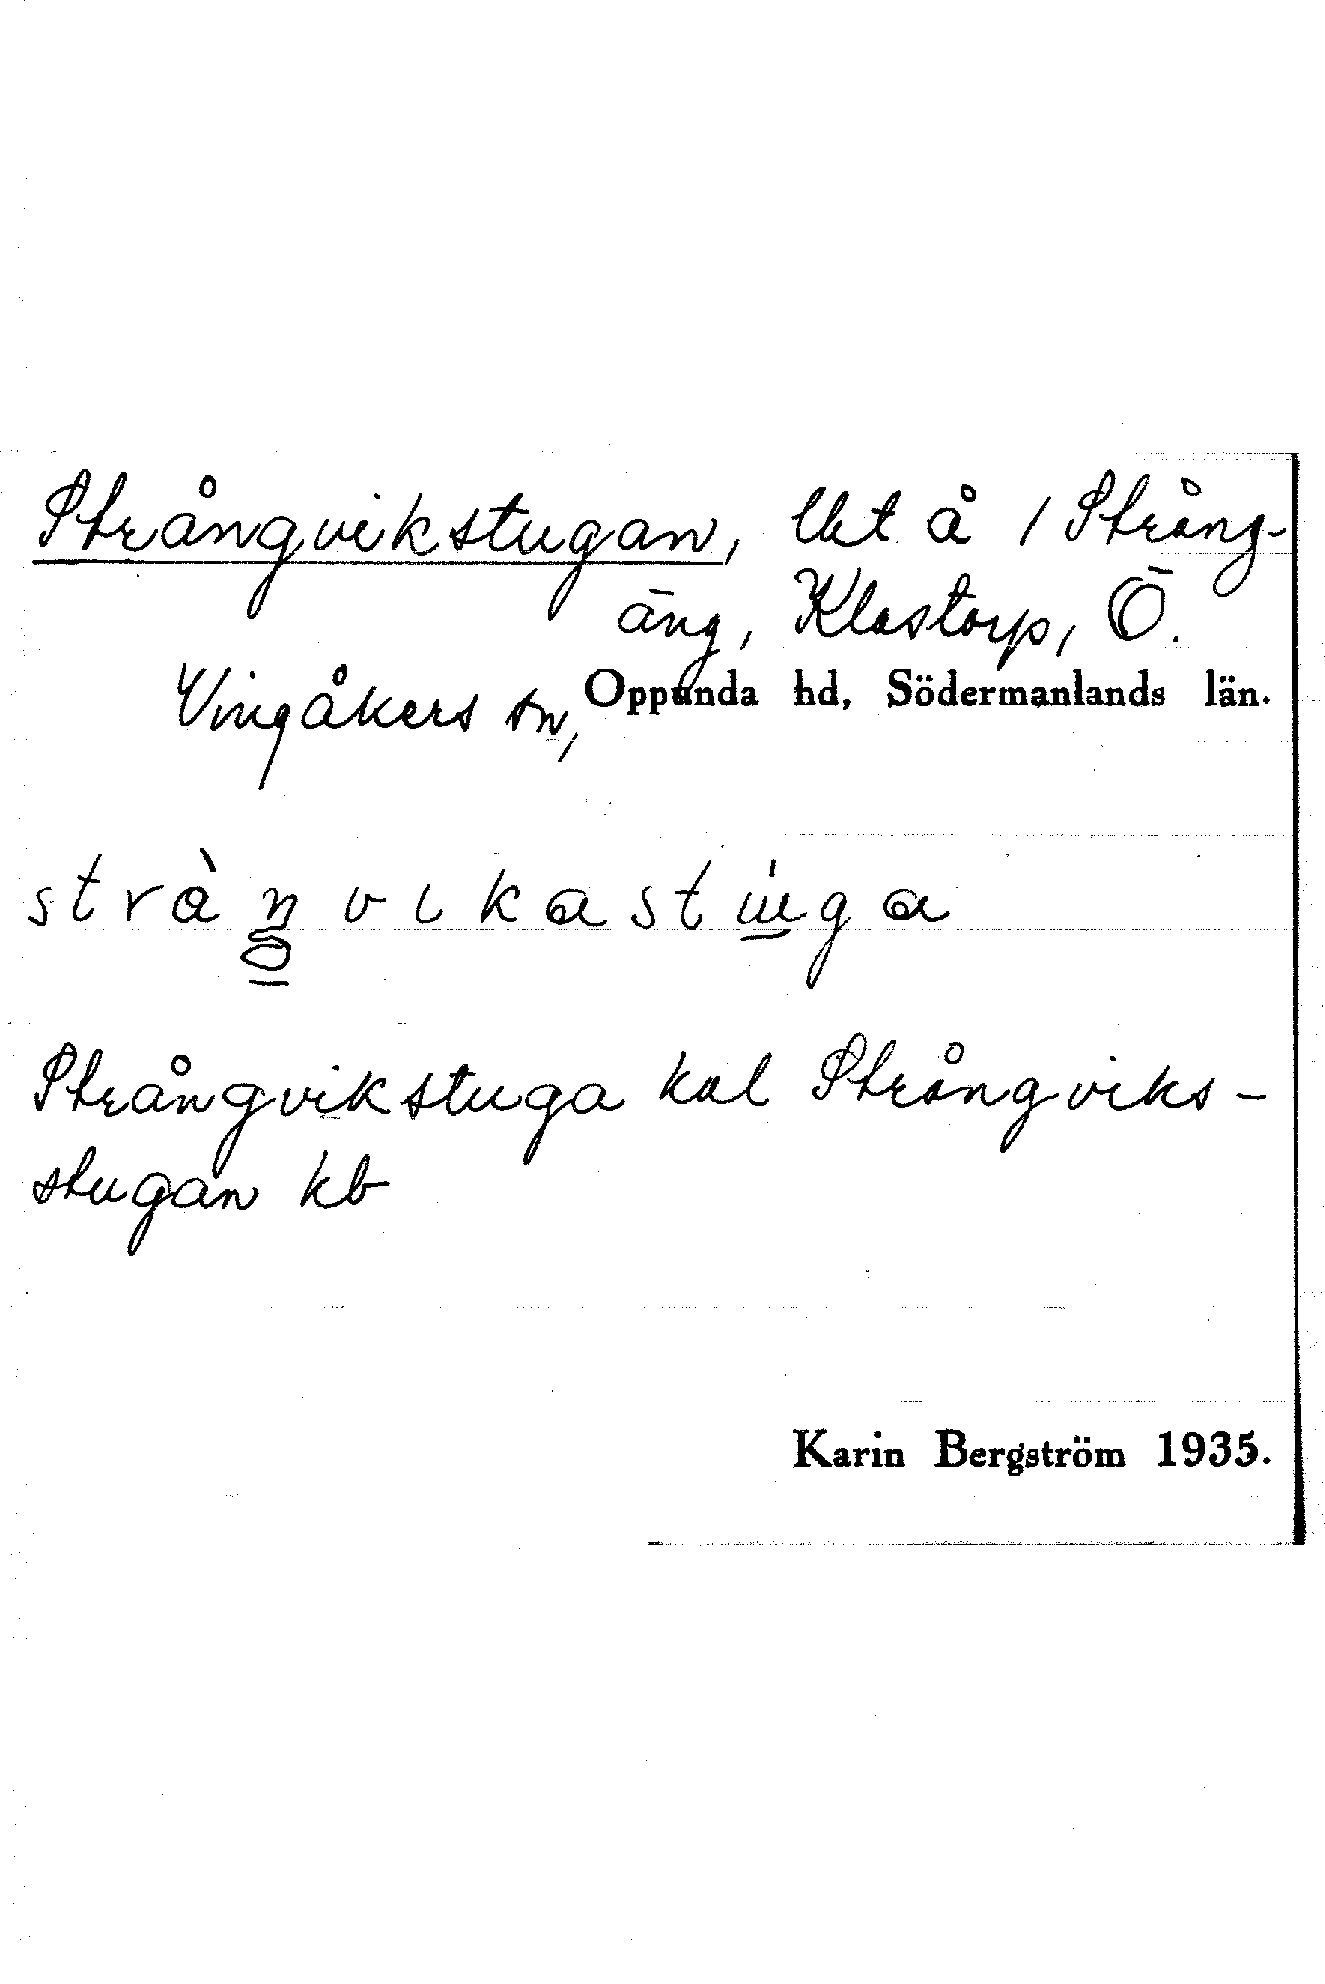 Strångvikstugan, lht å 1 Strång-
äng, Klastorp, Ö.
Vingåkers sn, Oppunda hd, Södermanlands län.
Strångvikstuga kal Strångviks-
stugan kb
Karin Bergström 1935.